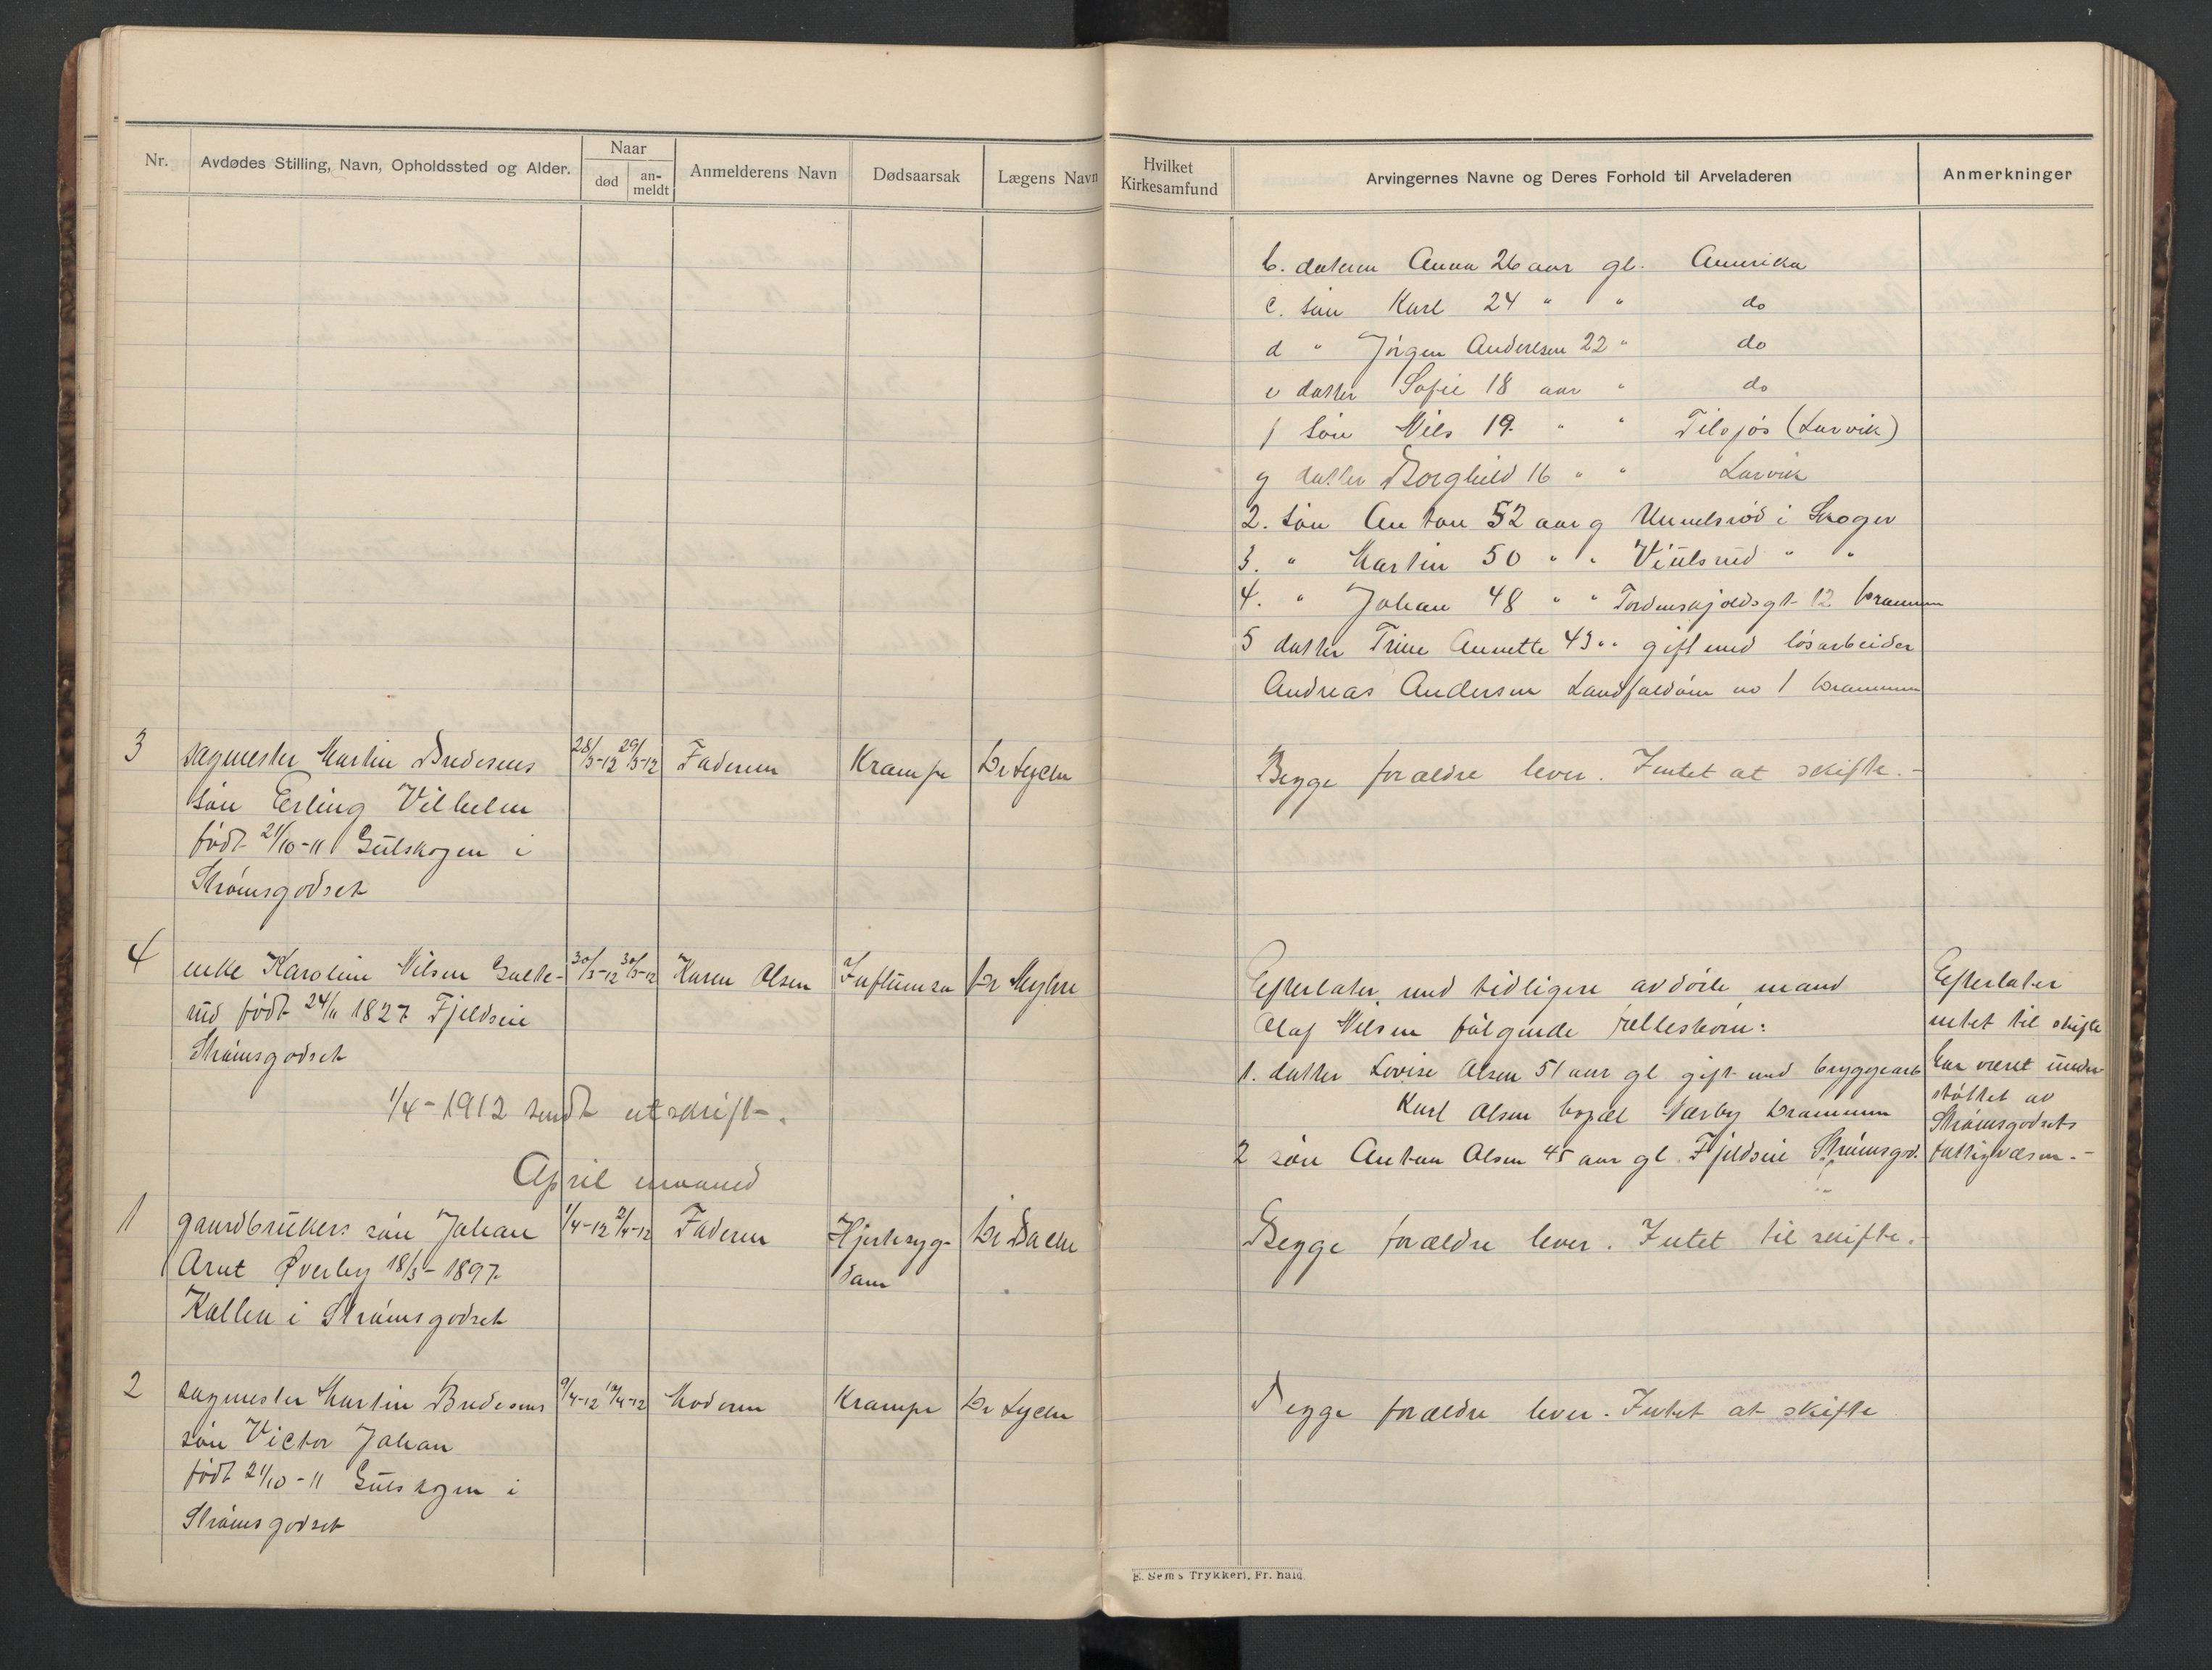 Nr.
Avdødes Stilling, Navn, Opholdssted og Alder.
Naar
død
an-
meldt
Anmelderens Navn
Dødsaarsak
Lægens Navn
Hvilket
Kirkesamfund
Arvingernes Navne og Deres Forhold til Arveladeren
Anmerkninger
b. dateren Anna 26 aar gl. Amerika
c. søn Karl 24 " " do
d " Jørgen Andersen 22 " do
e datter Sofie 18 aar " do
f søn Nils 19. " " (Larvik)
g datter Borghild 16 " " Larvik
2. søn Anton 52 aar g i Skoger
3. " Martin 50 " " " "
4. " Johan 48 " " Tordenskjoldsgt 12 Drammen
5 datter Trine Annette 43 " " gift med løsarbeider
Andreas Andersen Landfaldøen no 1 Drammen
3 sagmester Martin Bredesens 28/3-12 29/3-12 Faderen Krampe Dr Lyche Begge forældre lever. Intet at skifte.-
søn Erling Vilhelm
født 21/10-11 Gulskogen i
Strømsgodset
4 enke Karoline Nilsen Gulke- 30/3-12 30/3-12 Karen Olsen Influensa Dr Myhre Efterlater med tidligere avdøde mand Efterlater
rud født 24/11 1827 Fjeldseie Olaf Nilsen følgende fellesbørn: intet til skifte
Strømsgodset 1. datter Lovise Olsen 51 aar gl gift med bryggearb har været under
1/4-1912 sendt utskrift. Karl Olsen bopæl Nærby Drammen støttet av
Strømsgodsets
2 søn Anton Olsen 45 aar gl. Fjeldseie Strømsgod. fattigvæsen.-
April maaned
1 gaardbrukers søn Johan 1/4-12 2/4-12 Faderen Hjertesyg- Dr Bache Begge forældre lever. Intet til skifte.
Arnt Øverby 18/3-1897. dom
Kallen i Strømsgodset
2 sagmester Martin Bredesens 9/4-12 10/4-12 Moderen Krampe Dr Lyche Begge forældre lever. Intet at skifte
søn Victor Johan
født 21/10-11 Gulskogen i
Strømsgodset
E. Sems Trykkeri, Fr. hald.